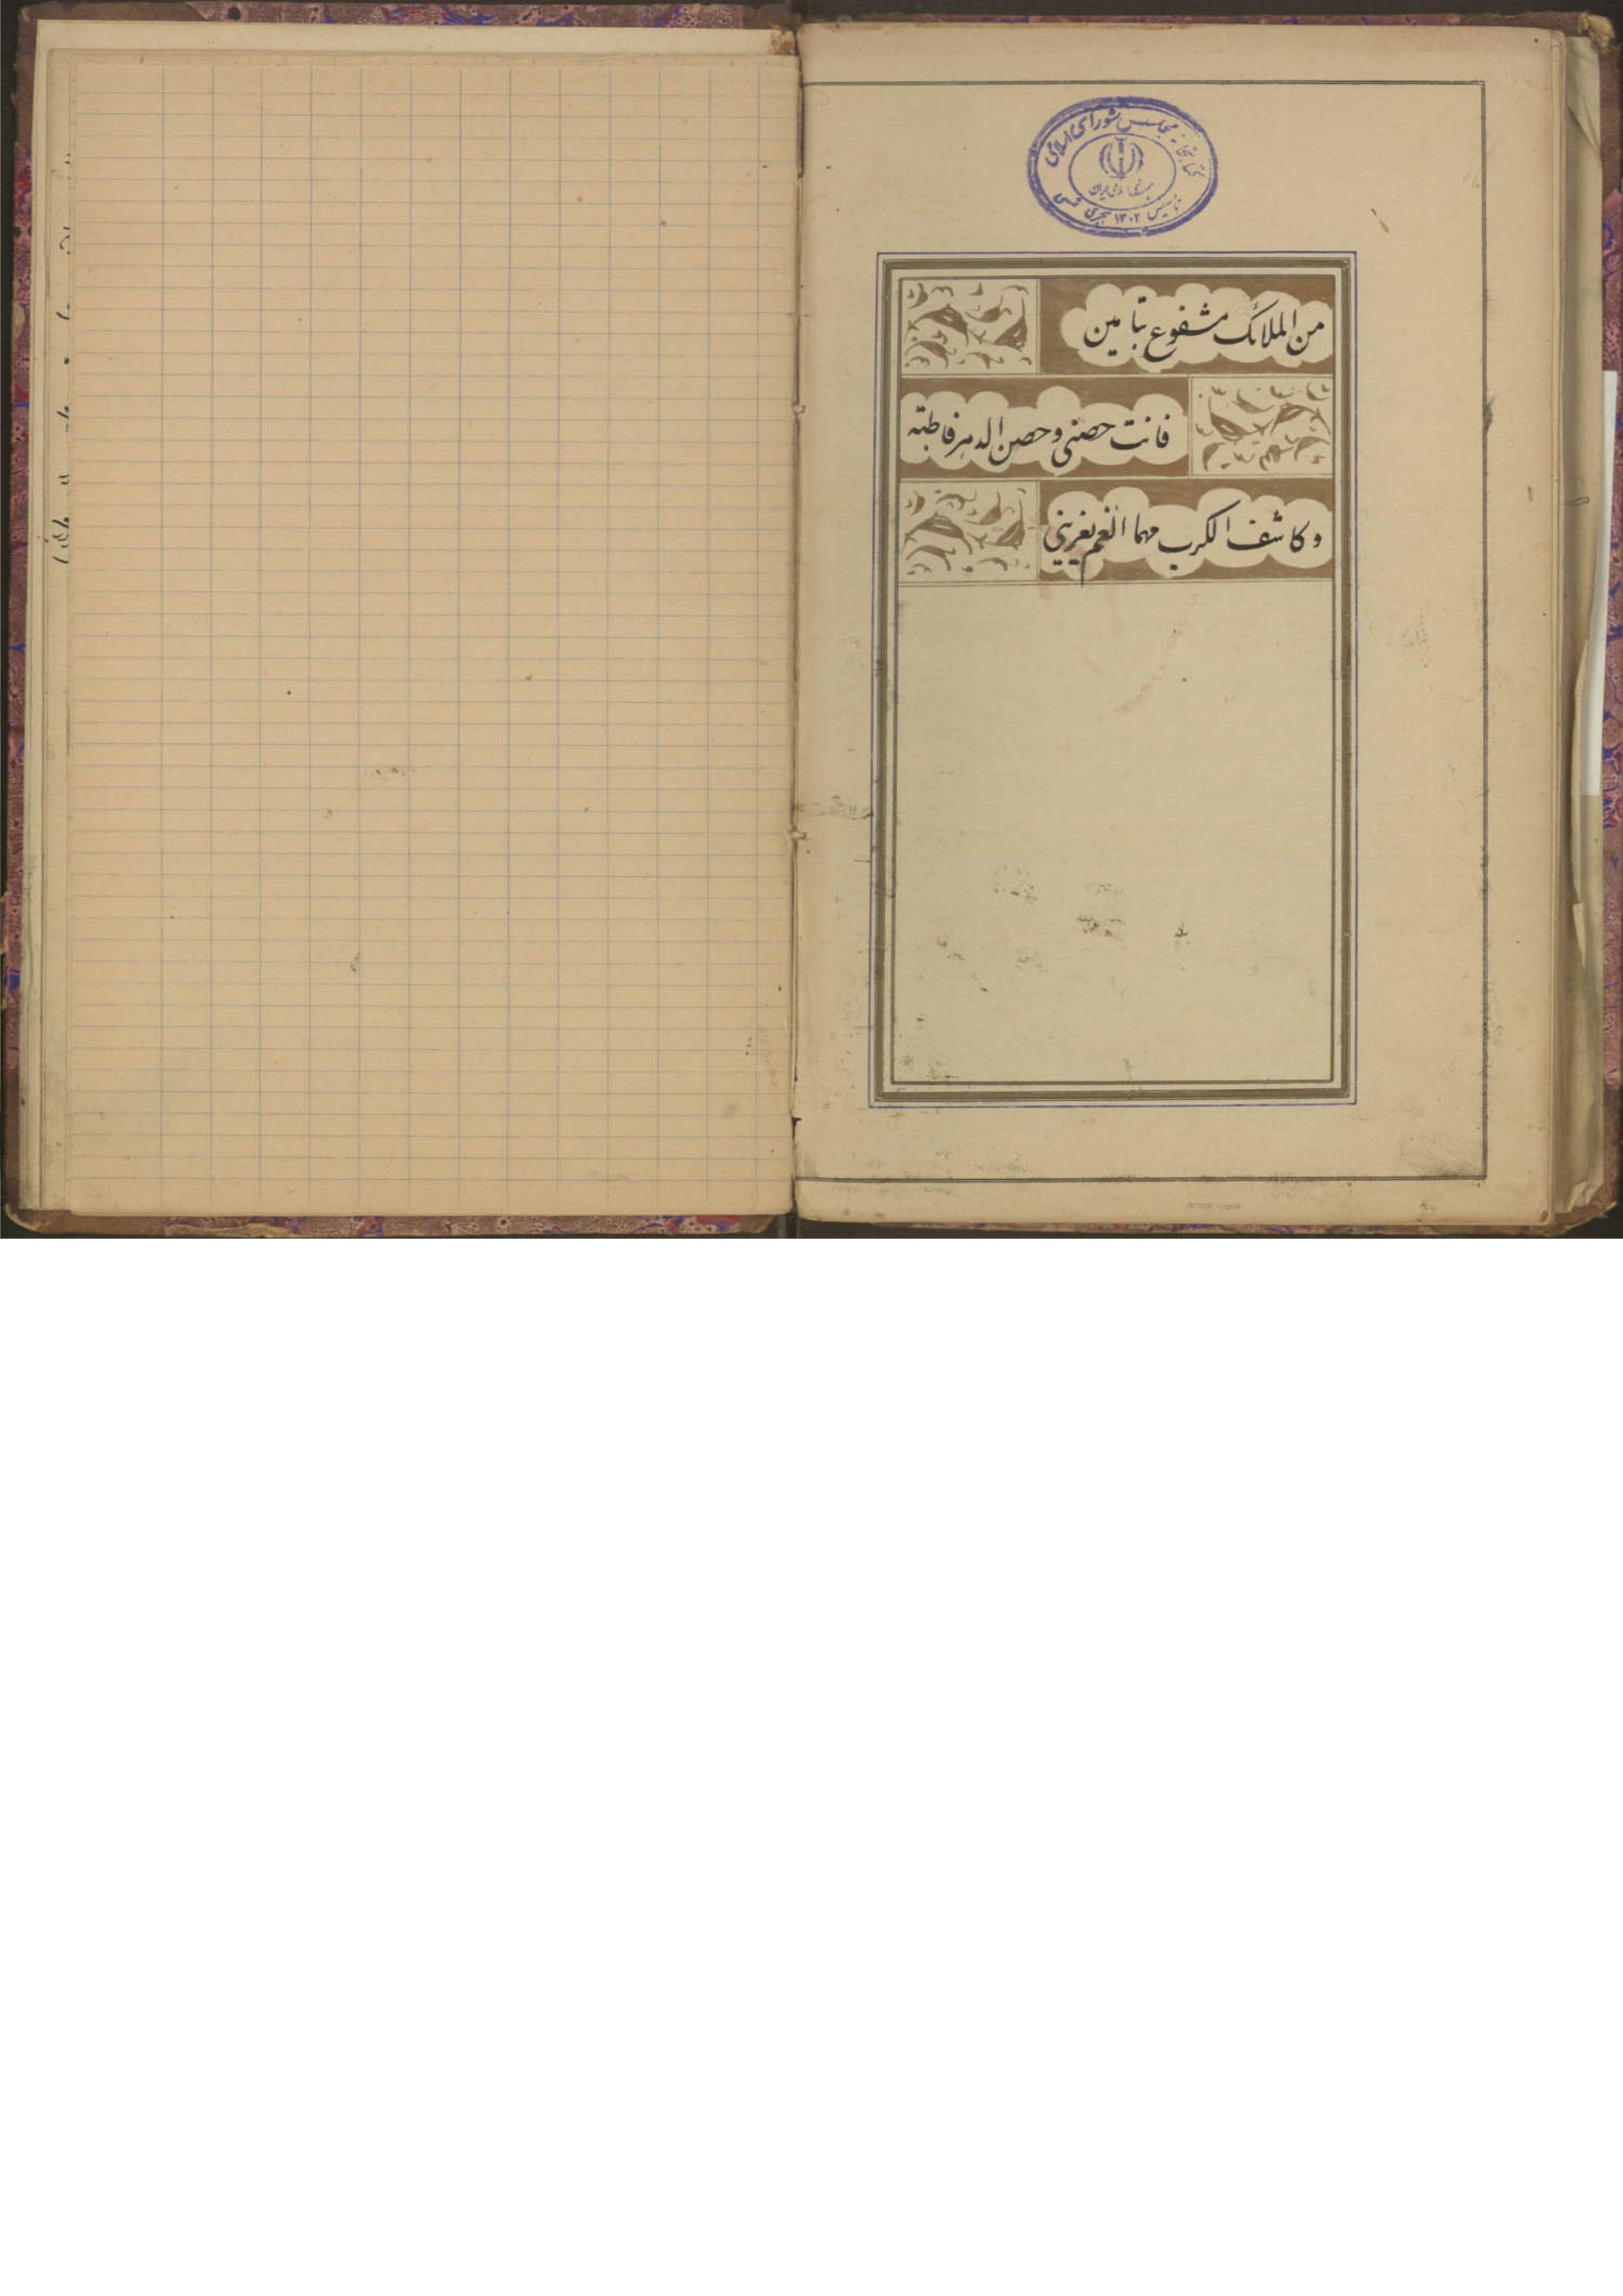 کتابخانه مجلس شورای اسلامی
جمهوری اسلامی ایران
تاسیس ۱۳۰۲ هجری شمسی
من الملائک مشفوع بتامین
فانت حصنی و حصن الدهر فاطبته
و کاشف الکرب مهما الغم یغرینی